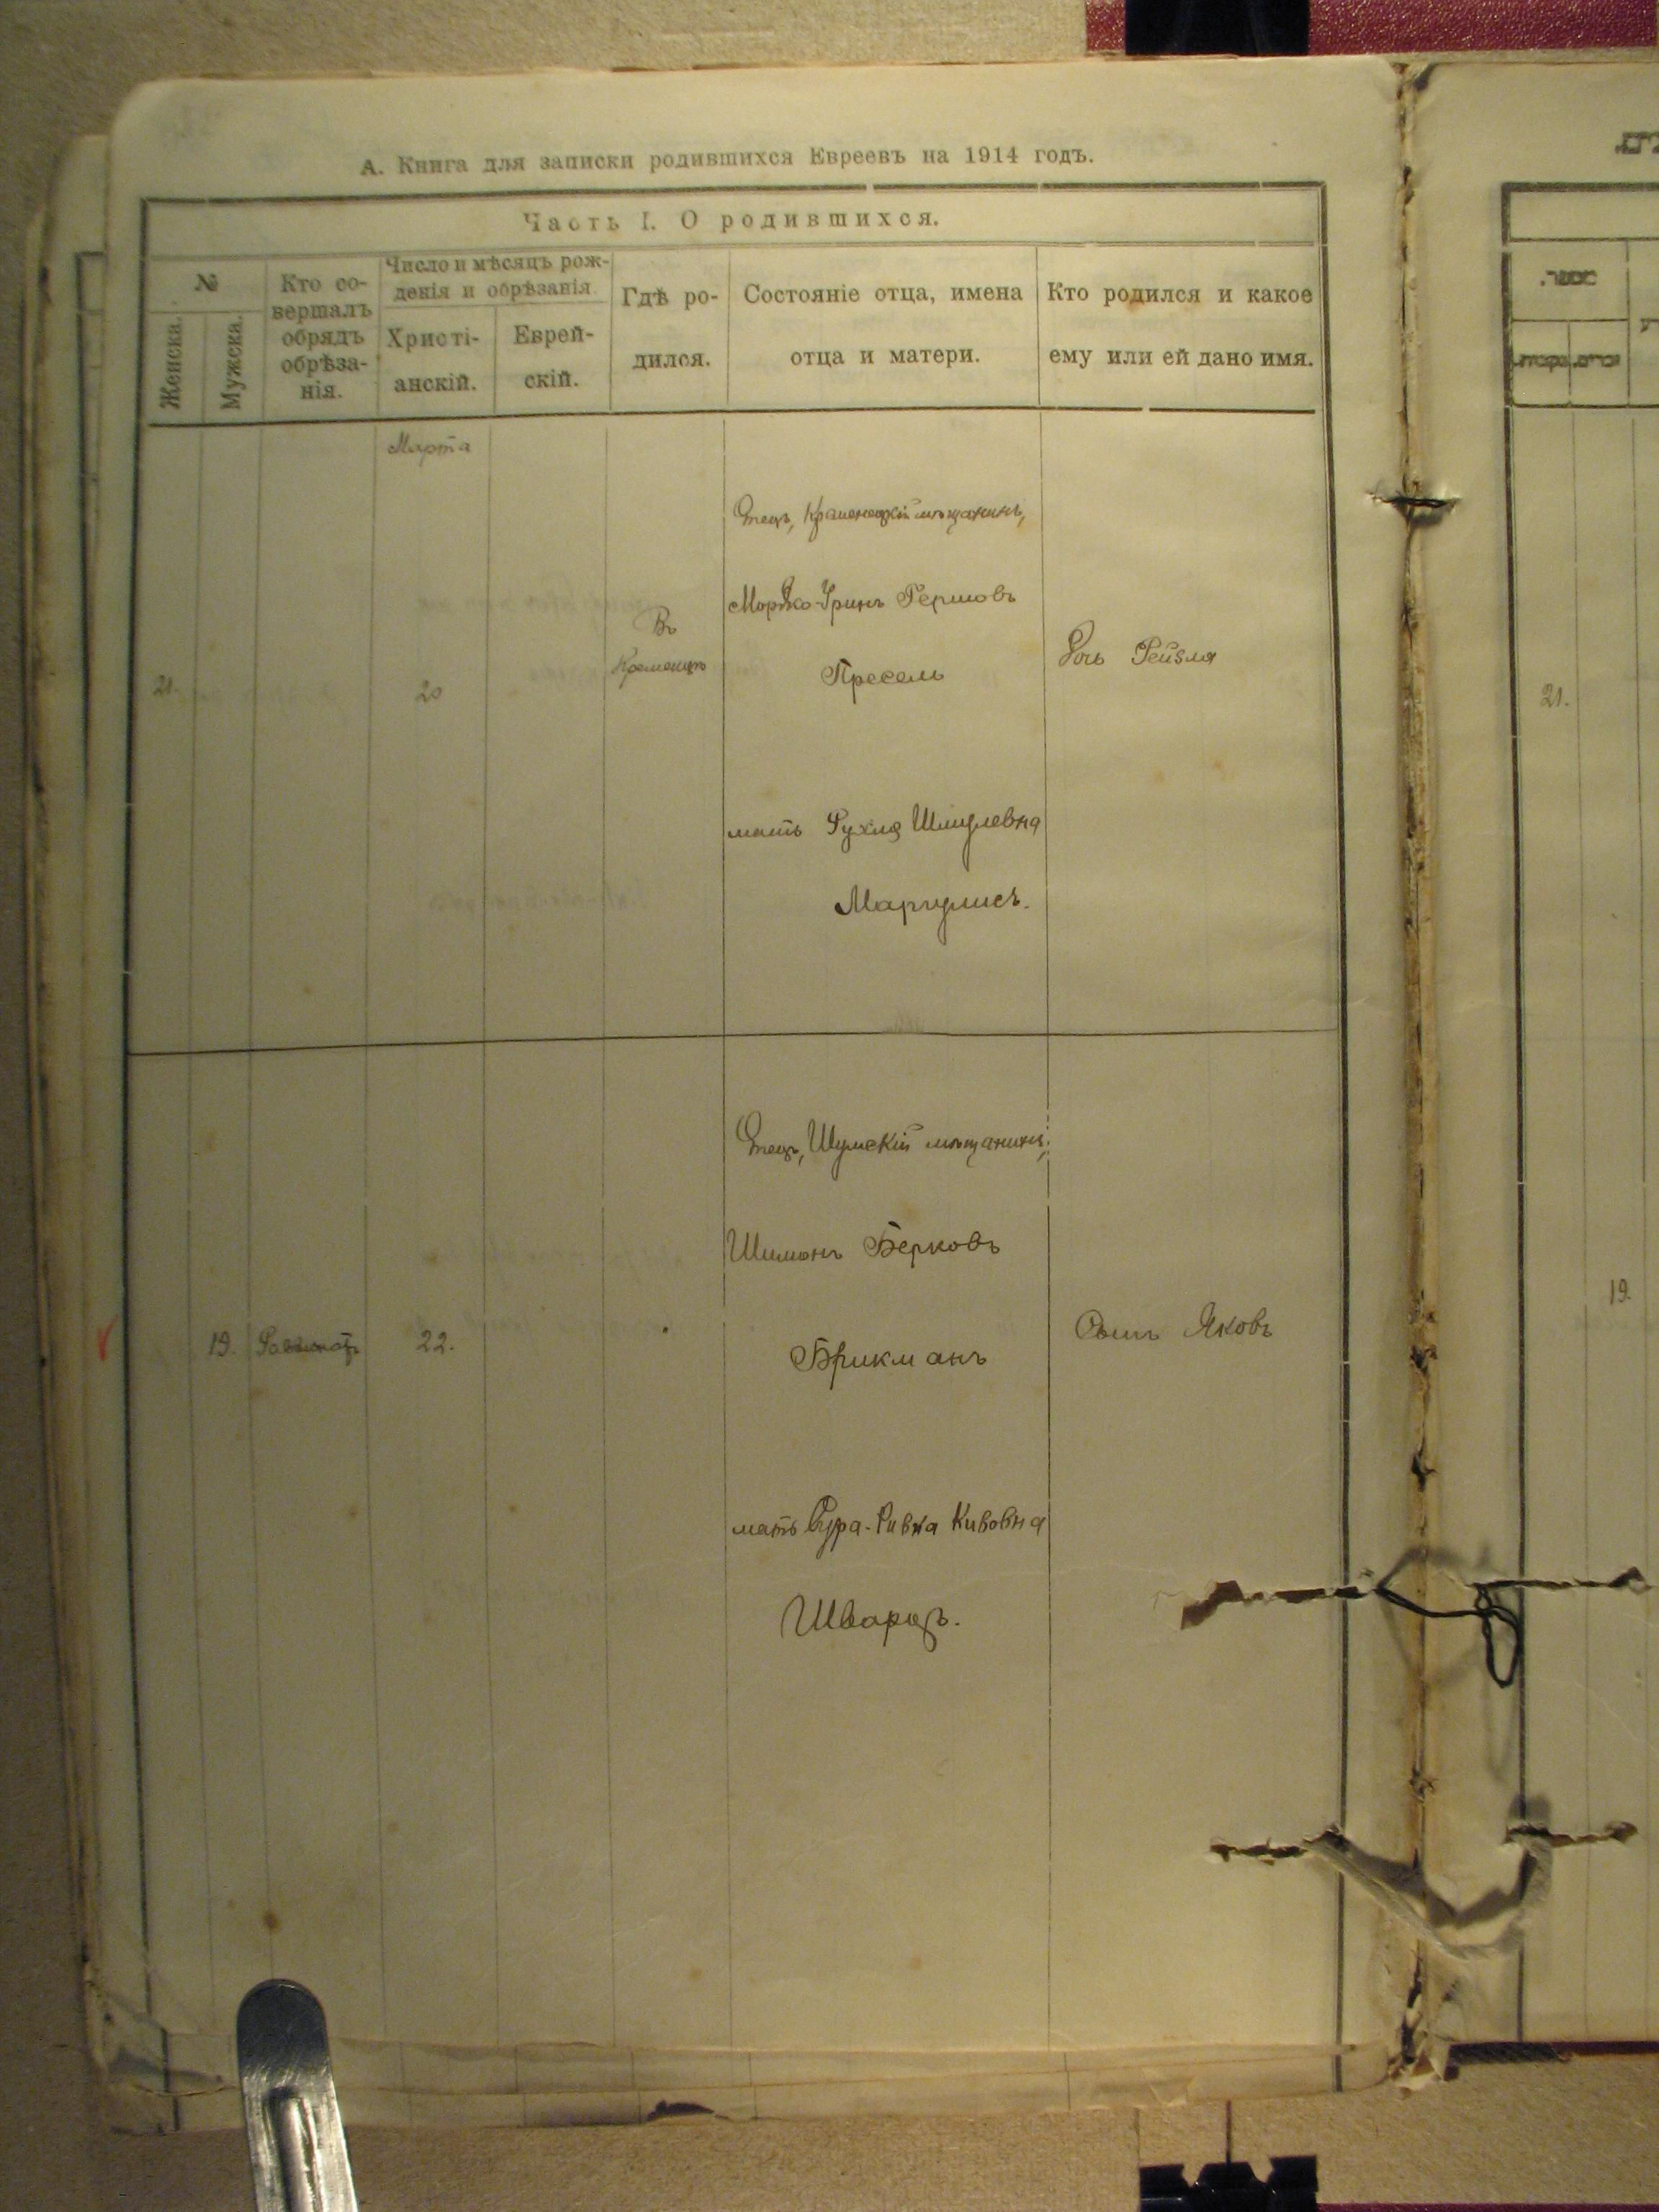 А. Книга для записки родившихся Евреевъ на 1914 годъ.
Часть I. О родившихся.
№
Женска.
Мужска.
Кто со-
вершалъ
обрядъ
обрѣза-
нія.
Число и мѣсяцъ рож-
денія и обрѣзанія.
Христі-
анскій.
Еврей-
скій.
Гдѣ ро-
дился.
Состояніе отца, имена
отца и матери.
Кто родился и какое
ему или ей дано имя.
Марта
21.
20
Въ
Кременцѣ
Отецъ, Кременецкій мѣщанинъ,
Гершовъ
Пресель
мать Рухля Шмулевна
Маргулисъ.
Дочь Рейзля
21.
19.
22.
Отецъ, Шумскій мѣщанинъ,
Шимонъ Берковъ
Брикманъ
мать Сура-Ривка Кивовна
Шварцъ.
Сынъ Яковъ
19.